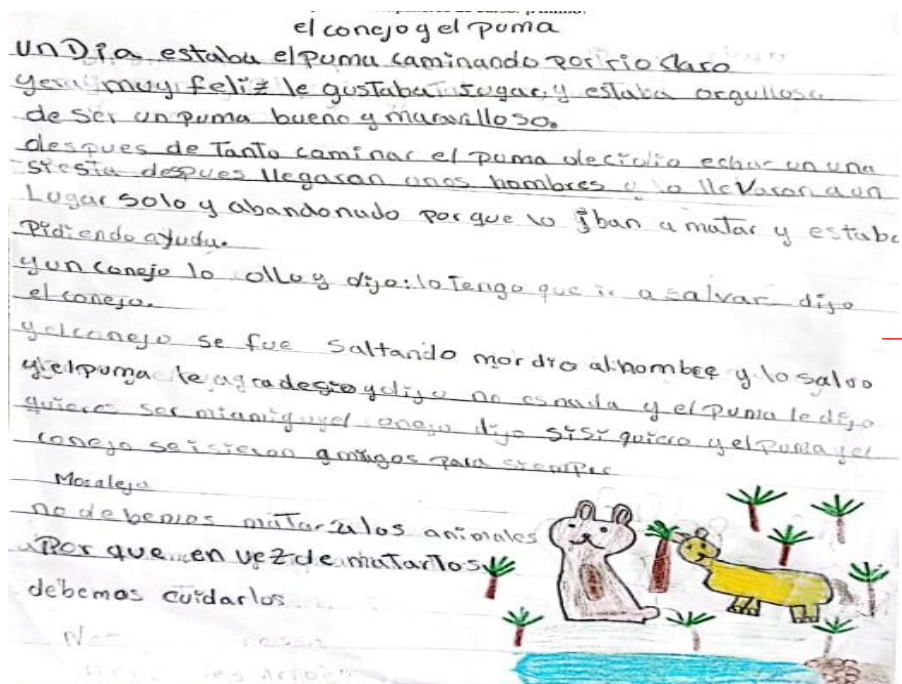 el conejo y el puma
un Dia estaba el puma caminando por rio claro
y era muy feliz le gustaba jugar, y estaba orgullosa
de ser un puma bueno y maravilloso.
despues de Tanto caminar el puma decidio echar un una
siesta despues llegaron unos hombres y lo llevaron a un
Lugar solo y abandonado por que lo iban a matar y estaba
Pidiendo ayuda.
y un conejo lo olloy dijo: lo Tengo que ir a salvar dijo
el conejo.
y el conejo se fue saltando mordio al hombre y lo salvo
y el puma le agradesio y dijo no es nada y el puma le dijo
quieres ser mi amigo y el conejo dijo sisi quiero y el puma y el
conejo se isieron amigos para siempre
Moraleja
no debemos matar a los animales
Por que en vez de matarlos
debemos cuidarlos